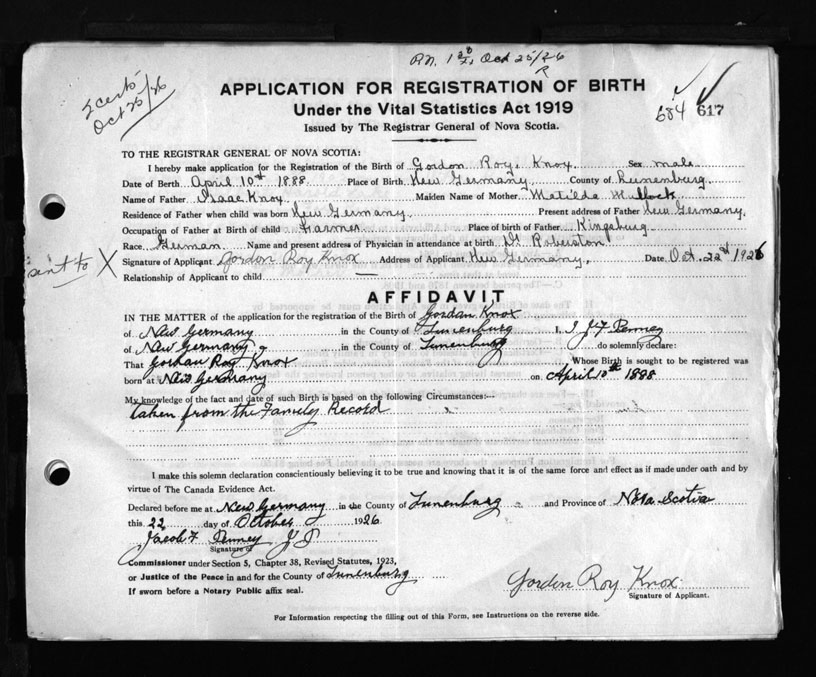 R.N. 1 Oct 25/26
2 certs
Oct 25/26
APPLICATION FOR REGISTRATION OF BIRTH
Under the Vital Statistics Act 1919
684 617
Issued by The Registrar General of Nova Scotia.
TO THE REGISTRAR GENERAL OF NOVA SCOTIA:
I hereby make application for the Registration of the Birth of Gordon Roy Knox Sex male
Date of Birth April 10th 1888 Place of Birth New Germany County of Lunenburg.
Name of Father Isaac Knox Maiden Name of Mother Matilda Mullock
Residence of Father when child was born New Germany Present address of Father New Germany.
Occupation of Father at Birth of child Farmer Place of birth of Father Kingsburg
Race German Name and present address of Physician in attendance at birth Dr Roberston
sent to X
Signature of Applicant Gordon Roy Knox Address of Applicant New Germany, Date Oct. 22nd 1926
Relationship of Applicant to child —
AFFIDAVIT
IN THE MATTER of the application for the registration of the Birth of Gordan Knox
of New Germany in the County of Lunenburg I, J F Penney
of New Germany in the County of Lunenburg do solemnly declare:
That Gordan Roy Knox Whose Birth is sought to be registered was
born at New Germany on April 10th 1888
My knowledge of the fact and date of such Birth is based on the following Circumstances:—
taken from the Family Record
I make this solemn declaration conscientiously believing it to be true and knowing that it is of the same force and effect as if made under oath and by
virtue of The Canada Evidence Act.
Declared before me at New Germany in the County of Lunenburg and Province of Nova Scotia
this 22 day of October 1926
Jacob F Penney J P
Signature of
Commissioner under Section 5, Chapter 38, Revised Statutes, 1923,
or Justice of the Peace in and for the County of Lunenburg
Gordon Roy Knox
If sworn before a Notary Public affix seal.
Signature of Applicant.
For Information respecting the filling out of this Form, see Instructions on the reverse side.